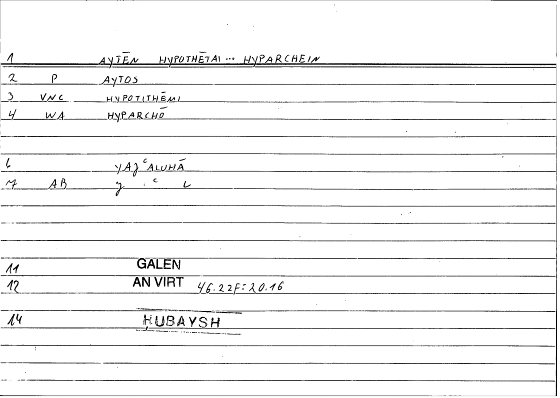 1 AYTĒN HYPOTHĒTAI ... HYPARCHEIN
2 P AYTOS
3 VNC HYPOTITHĒMI
4 WA HYPARCHŌ
6 YAJʿALUHĀ
7 AB J . ʿ L
11 GALEN
12 AN VIRT 46.22F = 20.16
14 ḤUBAYSH